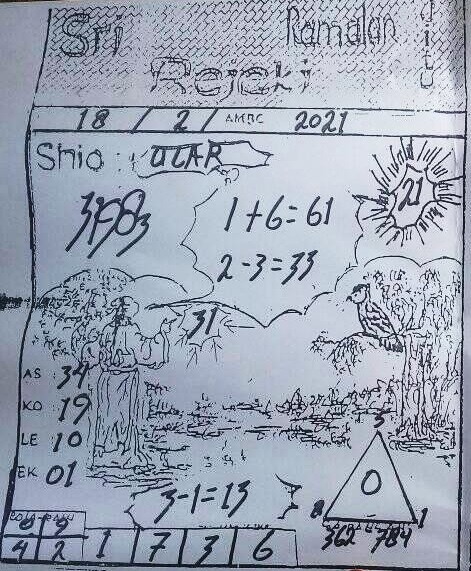 Sri Ramalan Jitu
Rejeki
18 / 2 / AMBC 2021
Shio : ULAR
21
1+6=61
2-3=33
31
AS 34
KO 19
LE 10
EK 01
5
0
8 1
3-1=13
362 784
9 9
4 2 1 7 3 6